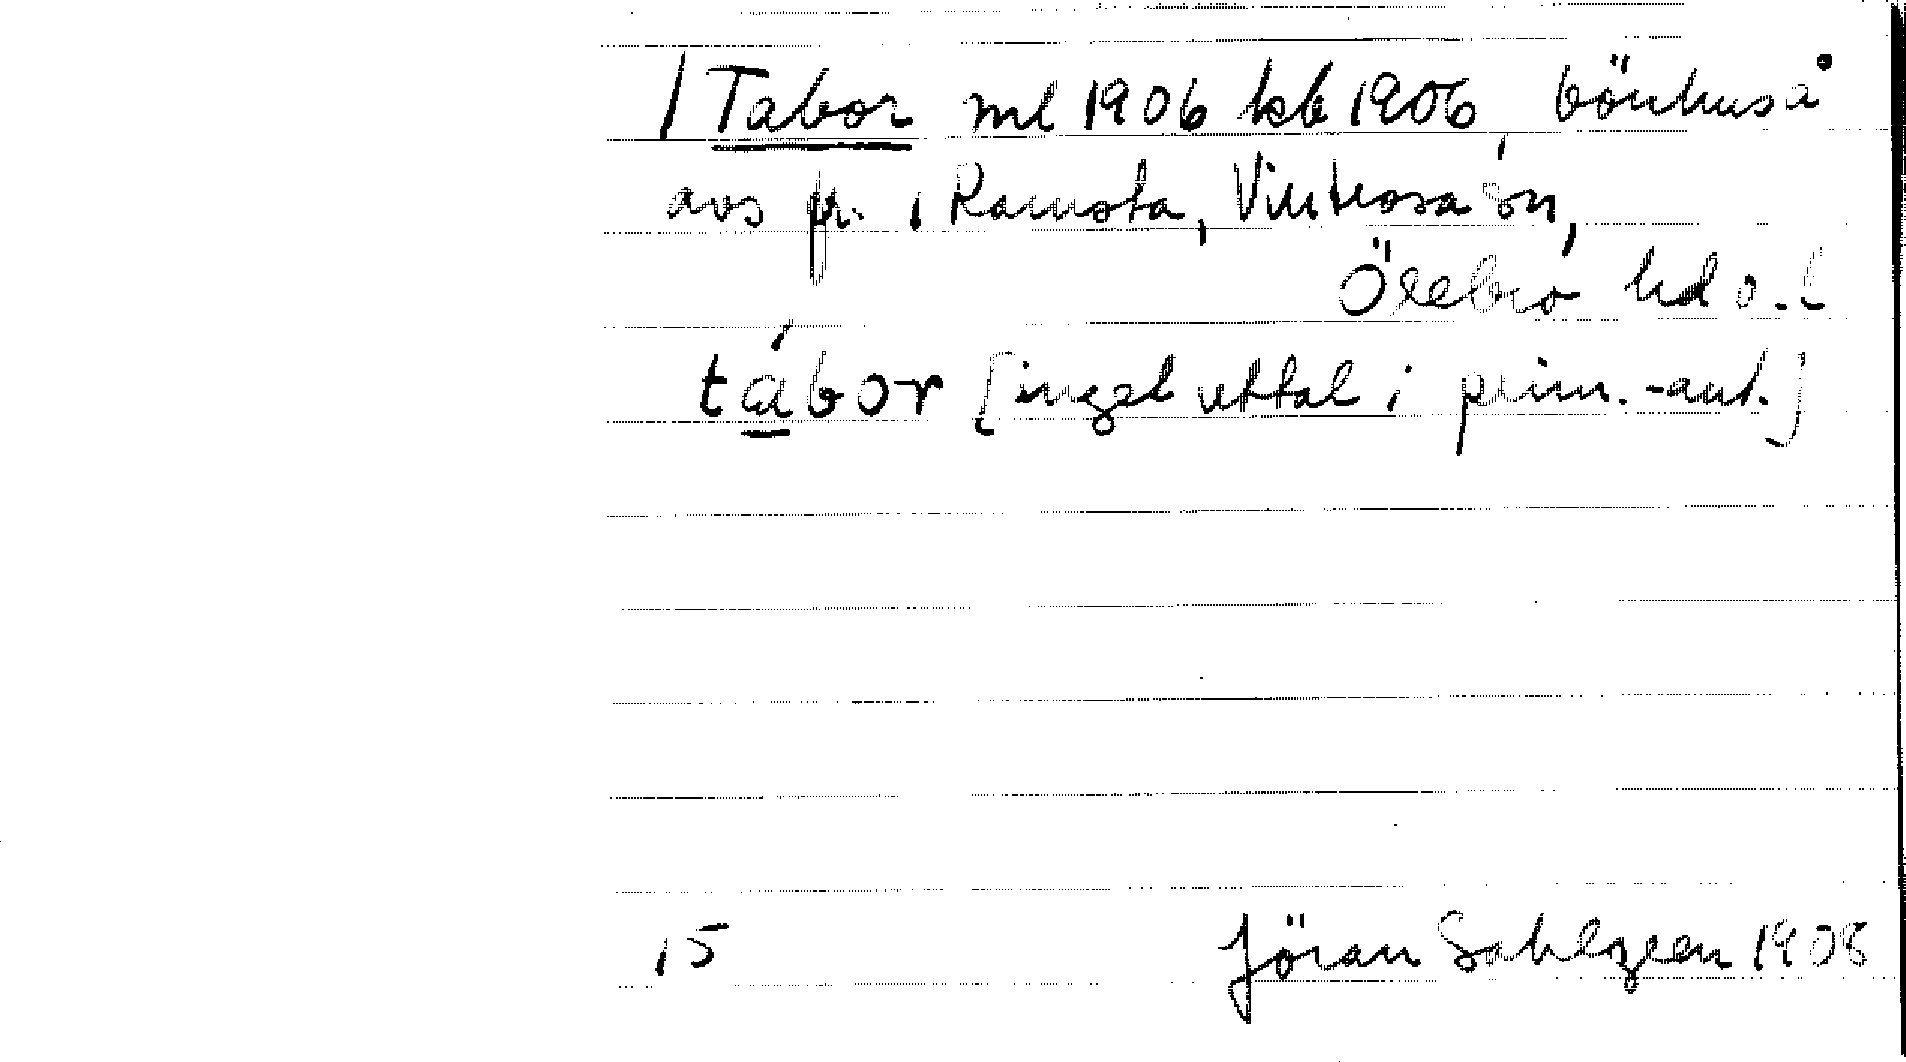 Tabor ml 1906 kb 1906, bönhus å
avs fr. Ramsta, Vintrosa sn,
Örebro hd o. l
tábor [inget uttal i prim.-ant.]
15 Jöran Sahlgren 1908